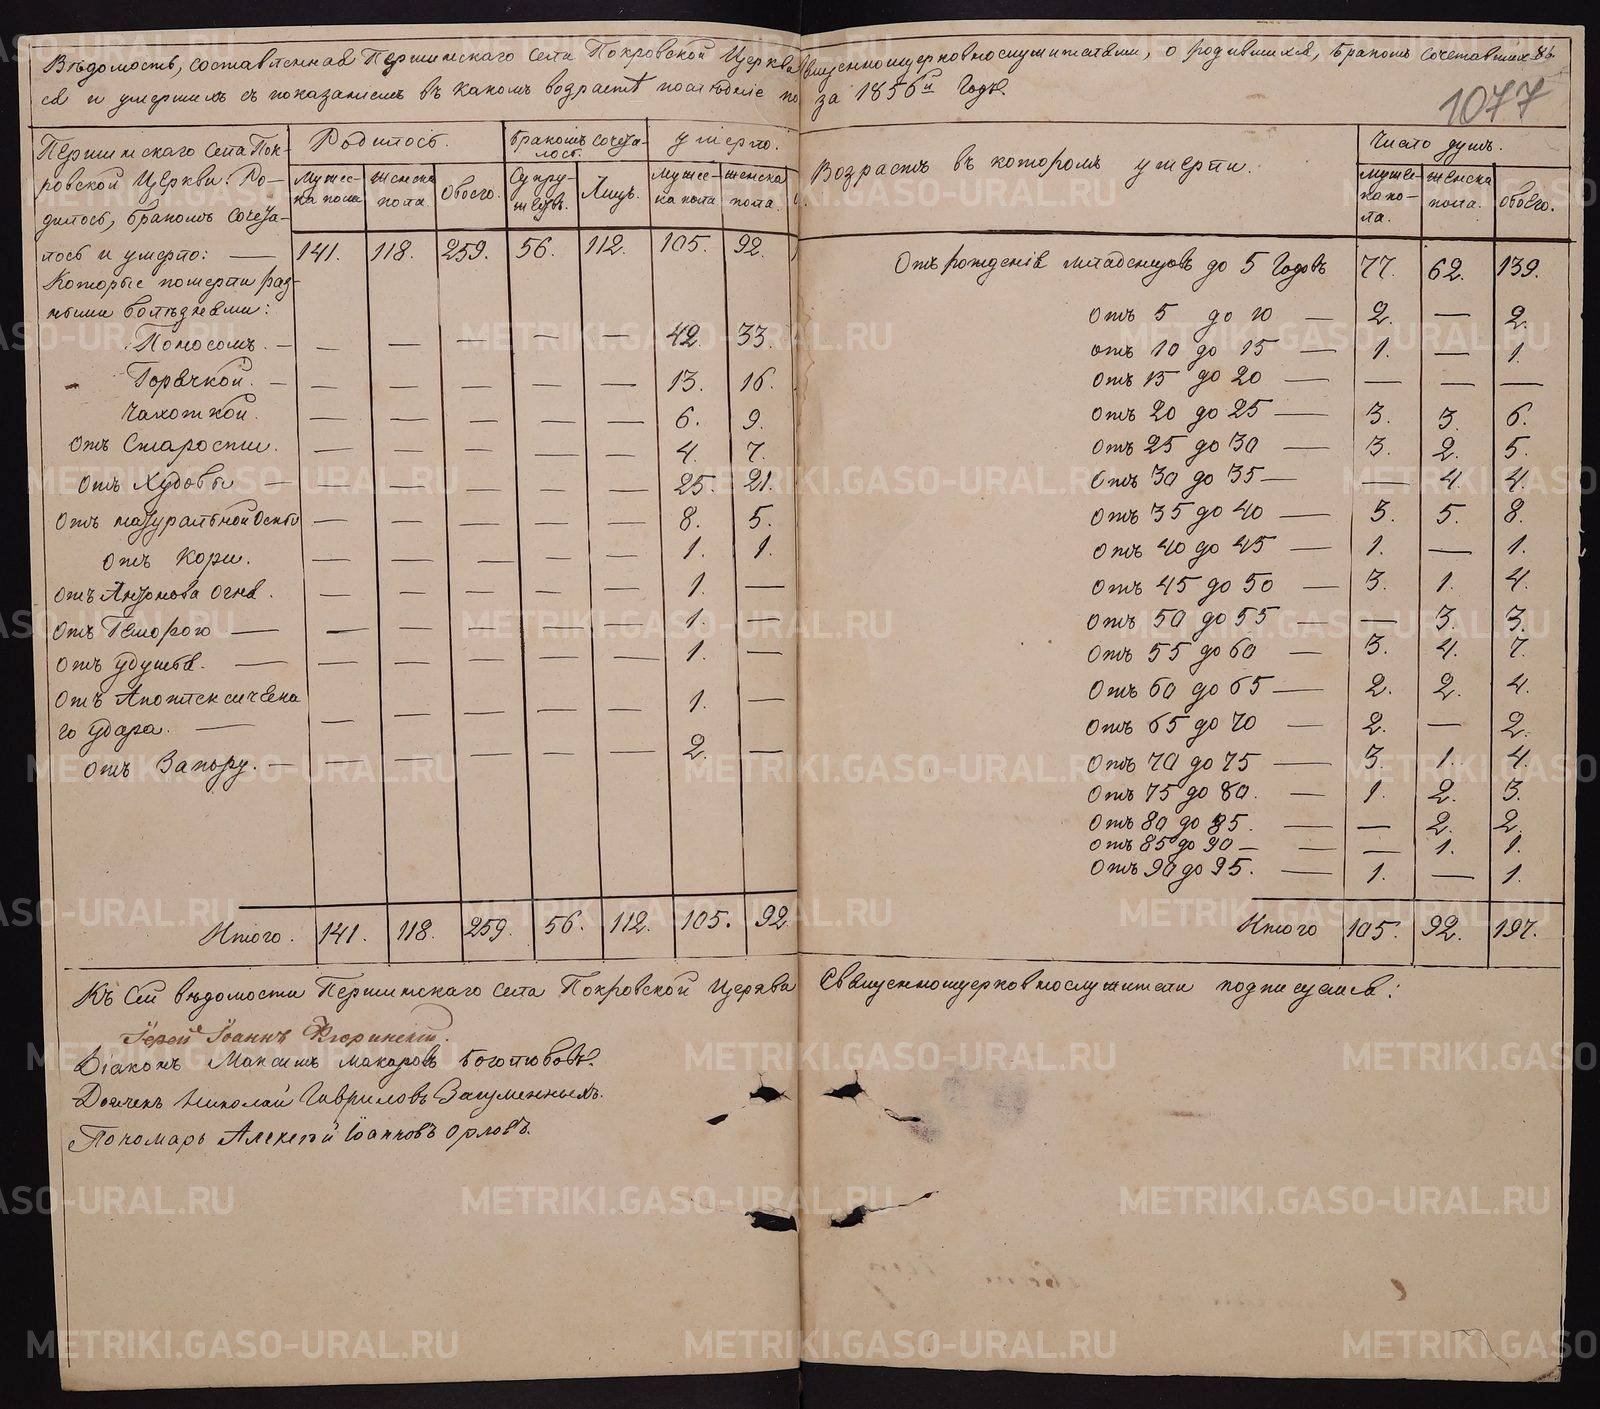 Вѣдомость, составленная Першинскаго села Покровской Церкви священноцерковнослужителями, о родившихся, бракомъ сочетавших-
ся и умершихъ съ показаніемъ въ какомъ возрастѣ послѣдніе по за 1856й Годъ.
1077
Першинскаго села Пок-
ровской Церкви: Ро-
дилось, бракомъ сочета-
лось и умерло: —
Родилось. Бракомъ сочета-
лось. умерло.
Мужес-
ка пола Женска
пола. Обоего. Супру-
жествъ. Лицъ. Мужес-
ка пола Женска
пола.
141. 118. 259. 56. 112. 105. 92.
Которые померли раз-
ными болѣзнями:
Поносомъ. — — — — — — 42. 33.
Горячкой. — — — — — — 13. 16.
Чахоткой. — — — — — 6. 9.
Отъ Старости. — — — — — 4. 7.
Отъ Худобы — — — — — — 25. 21.
Отъ натуральной Оспы — — — — — 8. 5.
отъ Кори. — — — — — 1. 1.
отъ Антонова огня. — — — — — 1. —
отъ Геморою — — — — — — 1. —
отъ удушья. — — — — — — 1. —
Отъ Апоплексическа
го удара. — — — — — — 1. —
отъ Запору. — — — — — — 2. —
Итого. 141. 118. 259. 56. 112. 105. 92
Возрастъ въ которомъ умерли.
Число душъ.
Мужес-
ка по-
ла. Женска
пола. обоего.
Отъ рожденія младенцовъ до 5 Годовъ 77. 62. 139.
Отъ 5 до 10 — 2. — 2.
отъ 10 до 15 — 1. — 1.
Отъ 15 до 20 — — — —
Отъ 20 до 25 — 3. 3. 6.
Отъ 25 до 30 — 3. 2. 5.
Отъ 30 до 35 — — 4. 4.
Отъ 35 до 40 — 3. 5. 8.
Отъ 40 до 45 — 1. — 1.
Отъ 45 до 50 — 3. 1. 4.
Отъ 50 до 55 — — 3. 3.
Отъ 55 до 60 — 3. 4. 7.
Отъ 60 до 65 — 2. 2. 4.
Отъ 65 до 70 — 2. — 2.
Отъ 70 до 75 — 3. 1. 4.
Отъ 75 до 80. — 1. 2. 3.
Отъ 80 до 85. — — 2. 2.
Отъ 85 до 90 — — — 1. 1.
Отъ 90 до 95. — 1. — 1.
Итого 105. 92. 197.
Къ сей вѣдомости Першинскаго села Покровской Церкви Священноцерковнослужители подписуемся:
Іерей Іоаннъ
Діаконъ Максимъ Макаровъ Боголюбовъ.
Дьячекъ Николай Гавриловъ Загуменныхъ.
Пономарь Алексѣй Іоанновъ Орловъ.
METRIKI.GASO-URAL.RU